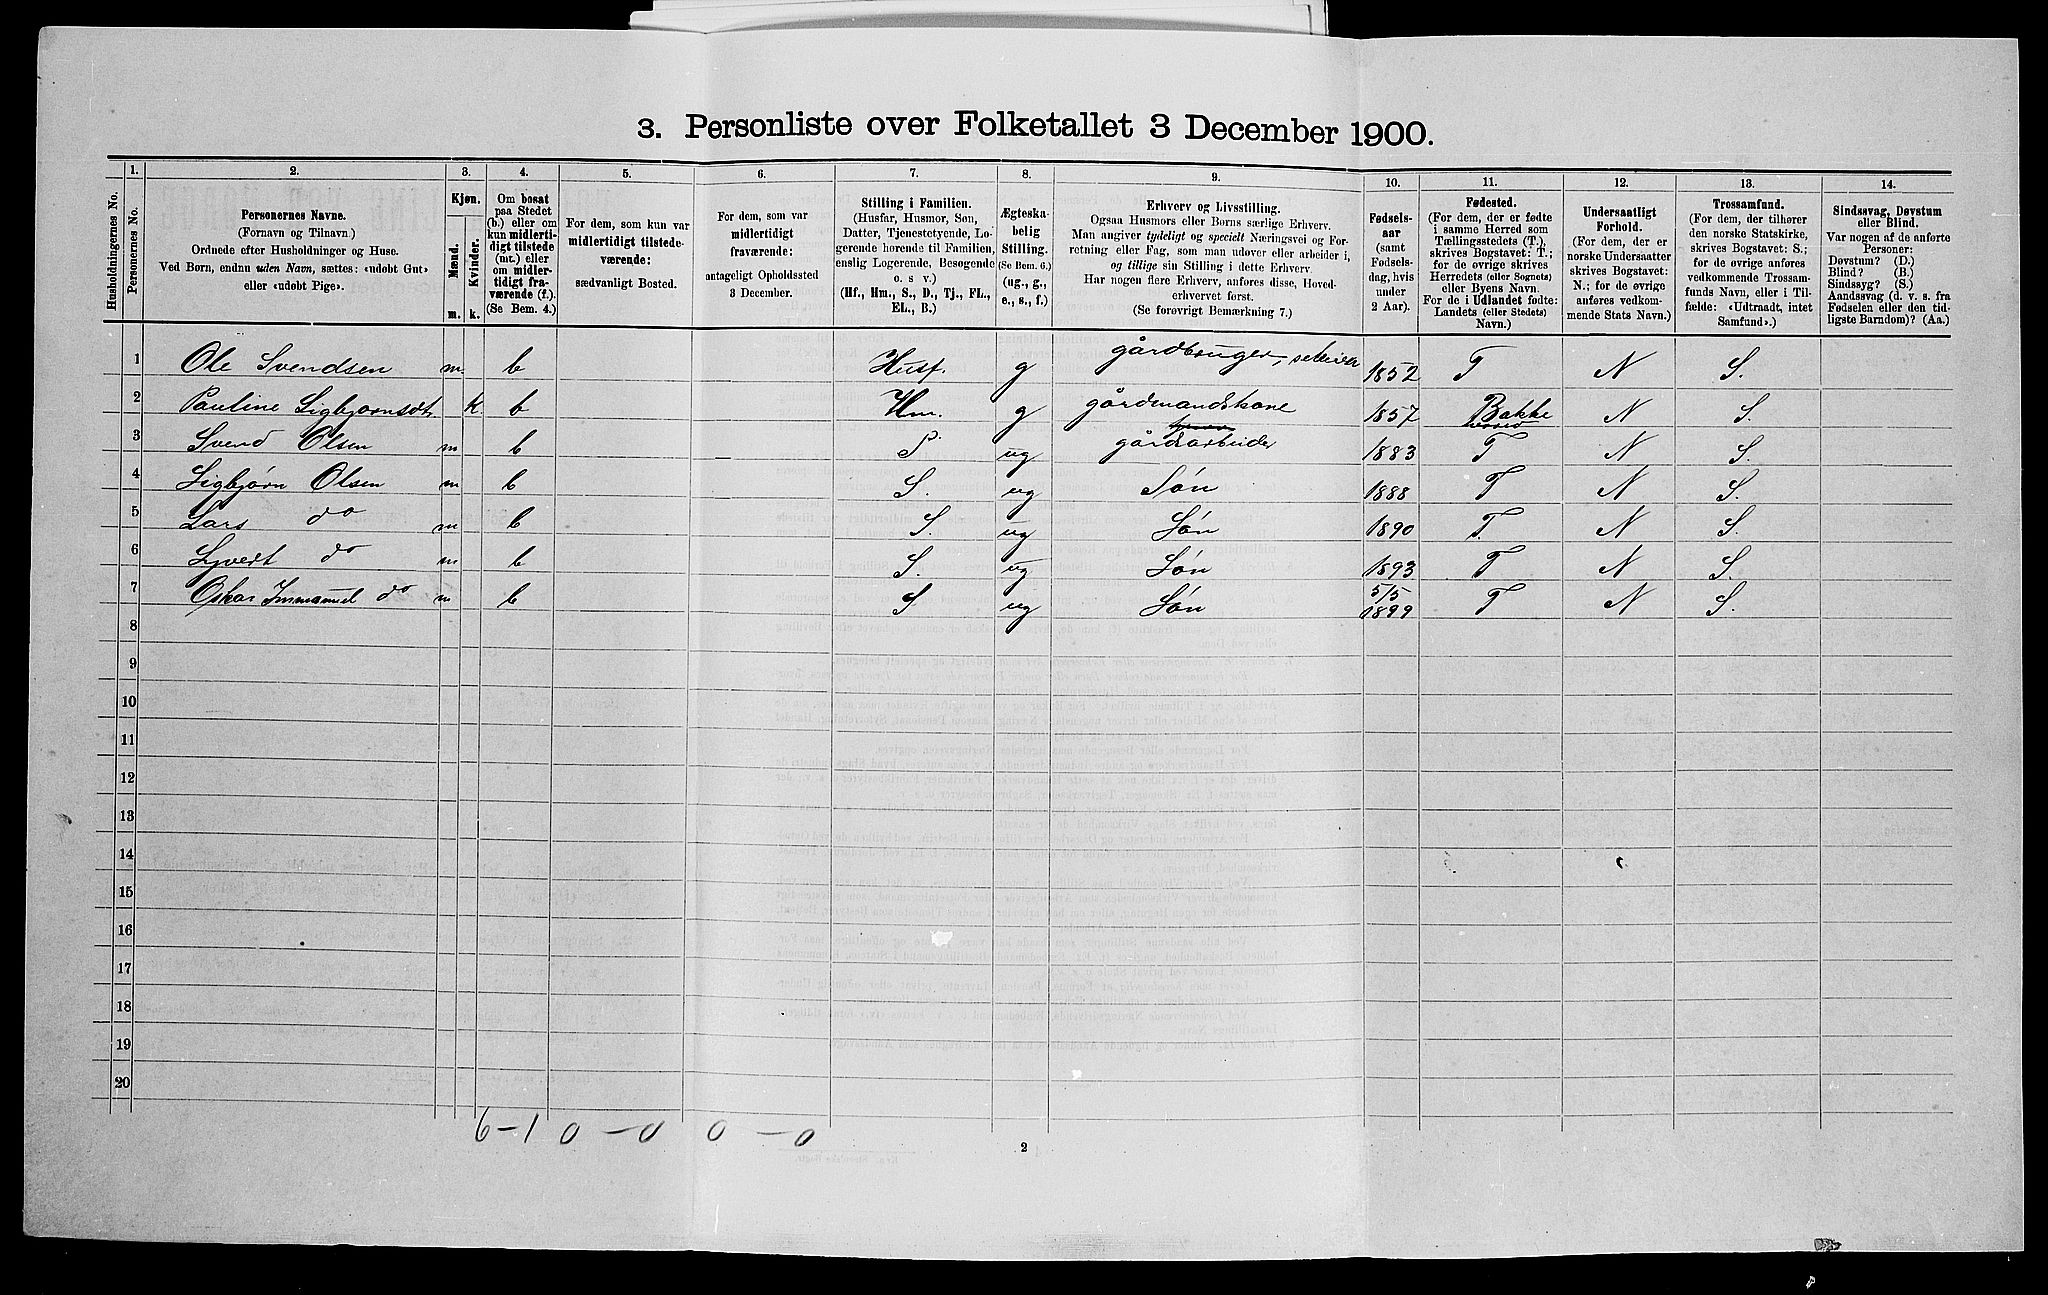 3. Personliste over Folketallet 3 December 1900.
1. 2. 3. 4. 5. 6. 7. 8. 9. 10. 11. 12. 13. 14.
Husholdningernes No.
Personernes No.
Personernes Navne.
(Fornavn og Tilnavn.)
Ordnede efter Husholdninger og Huse.
Ved Børn, endnu uden Navn, sættes: «udøbt Gut»
eller «udøbt Pige».
Kjøn.
Mænd.
Kvinder.
m. k.
Om bosat
paa Stedet
(b.) eller om
kun midlerti-
digt tilstede
(mt.) eller
om midler-
tidigt fra-
værende (f.).
(Se Bem. 4.)
For dem, som kun var
midlertidigt tilstede-
værende:
sædvanligt Bosted.
For dem, som var
midlertidigt
fraværende:
antageligt Opholdssted
3 December.
Stilling i Familien.
(Husfar, Husmor, Søn,
Datter, Tjenestetyende, Lo-
gerende hørende til Familien,
enslig Logerende, Besøgende
o. s v.)
(Hf., Hm., S., D., Tj., FL.,
EL., B.)
Ægteska-
belig
Stilling.
(Se Bem. 6.)
(ug., g.,
e., s., f.)
Erhverv og Livsstilling.
Ogsaa Husmors eller Børns særlige Erhverv.
Man angiver tydeligt og specielt Næringsvei og For-
retning eller Fag, som man udøver eller arbeider i,
og tillige sin Stilling i dette Erhverv.
Har nogen flere Erhverv, anføres disse, Hoved-
erhvervet først.
(Se forøvrigt Bemærkning 7.)
Fødsels-
aar
(samt
Fødsels-
dag, hvis
under
2 Aar).
Fødested.
(For dem, der er fødte
i samme Herred som
Tællingsstedets (T.),
skrives Bogstavet: T.;
for de øvrige skrives
Herredets (eller Sognets)
eller Byens Navn.
For de i Udlandet fødte:
Landets (eller Stedets)
Navn.)
Undersaatligt
Forhold.
(For dem, der er
norske Undersaatter
skrives Bogstavet:
N.; for de øvrige
anføres vedkom-
mende Stats Navn.)
Trossamfund.
(For dem, der tilhører
den norske Statskirke,
skrives Bogstavet: S.;
for de øvrige anføres
vedkommende Trossam-
funds Navn, eller i Til-
fælde: «Udtraadt, intet
Samfund».)
Sindssvag, Døvstum
eller Blind.
Var nogen af de anførte
Personer:
Døvstum? (D.)
Blind? (B.)
Sindssyg? (S.)
Aandssvag (d. v. s. fra
Fødselen eller den tid-
ligste Barndom)? (Aa.)
1 Ole Svendsen m. b Husf. g gårdbruger, 1852 T N S.
2 Pauline Sigbjørnsdt. k b Hm. g gårdmandskone 1857 Bakke herred N S.
3 Svend Olsen m b S. ug gårdsarbeider 1883 T N S.
4 Sigbjørn Olsen m b S. ug Søn 1888 T N S.
5 Lars do m b S. ug Søn 1890 T. N S.
6 Syvert do m b S. ug Søn 1893 T N S.
7 Oskar Immanuel do m b S ug Søn 5/5 1899 T N S.
8
9
10
11
12
13
14
15
16
17
18
19
20
6-1 0-0 0-0
2